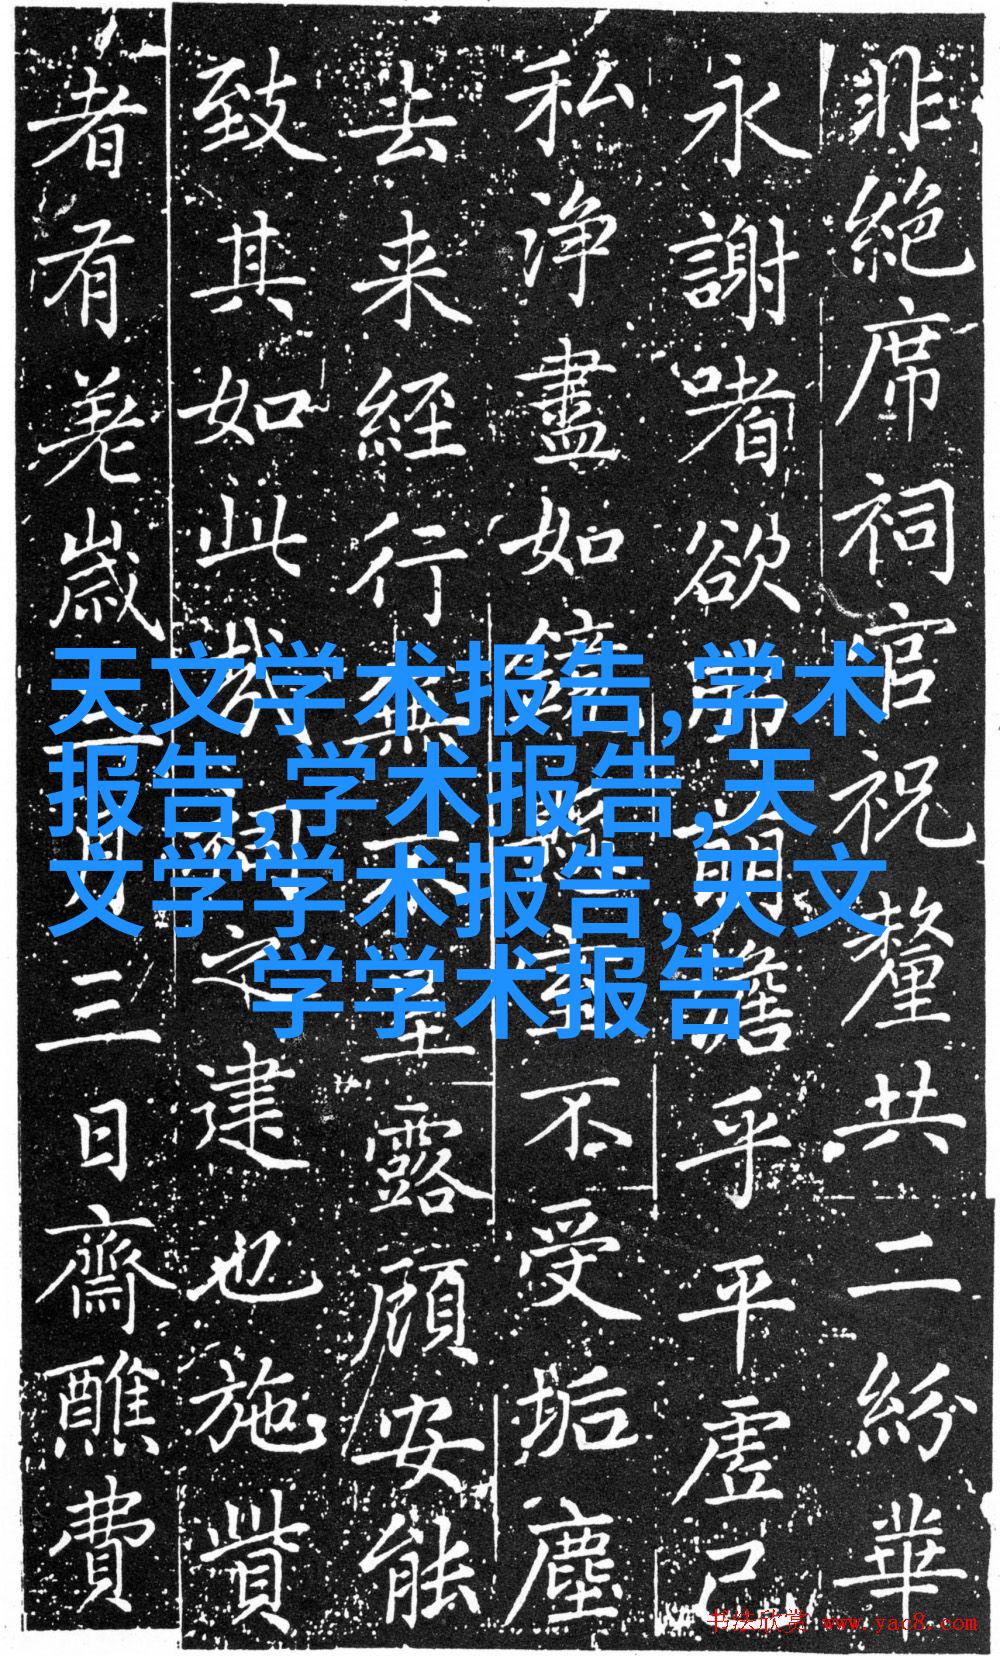 非絕席祠官祝釐共二紛華
永謝嗜欲弗萌澹乎平虛己
私淨盡如鏡不受垢塵
去来經行無不呈露顧安能
致其如此哉祠之建也施貲
者有羑歲三日齋醮費
天文学术报告,学术
报告,学术报告,天
文学学术报告,天文
学学术报告
书法欣赏 www.yac8.com